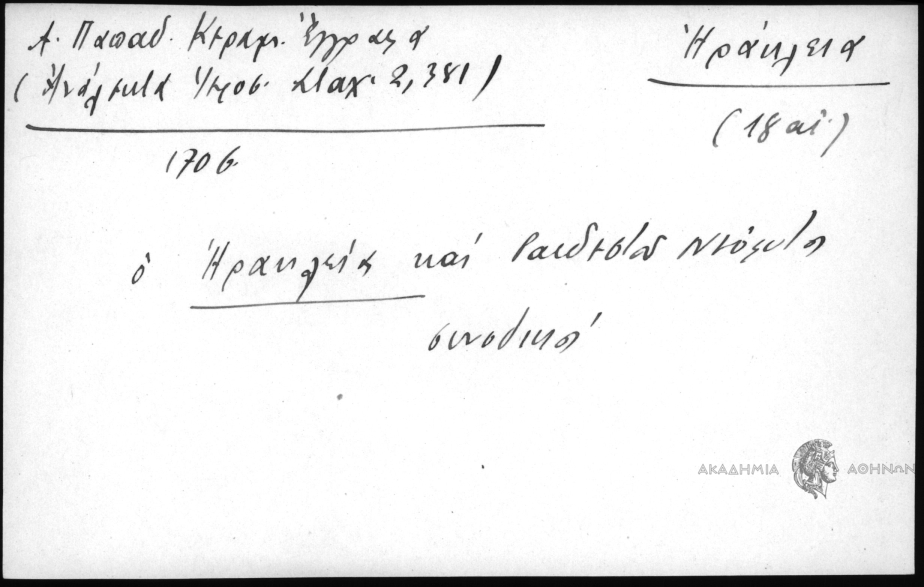 Α. Παπαδ. Κεραμ. Ἔγγραφα
Ἡράκλεια
(Ἀνάλεκτα Ἱεροσ. Σταχ. 2, 381)
(18 αἰ.)
1706
ὁ Ἡρακλείας καί Ραιδεστοῦ Νεόφυτος
συνοδικοῖ
ΑΚΑΔΗΜΙΑ ΑΘΗΝΩΝ